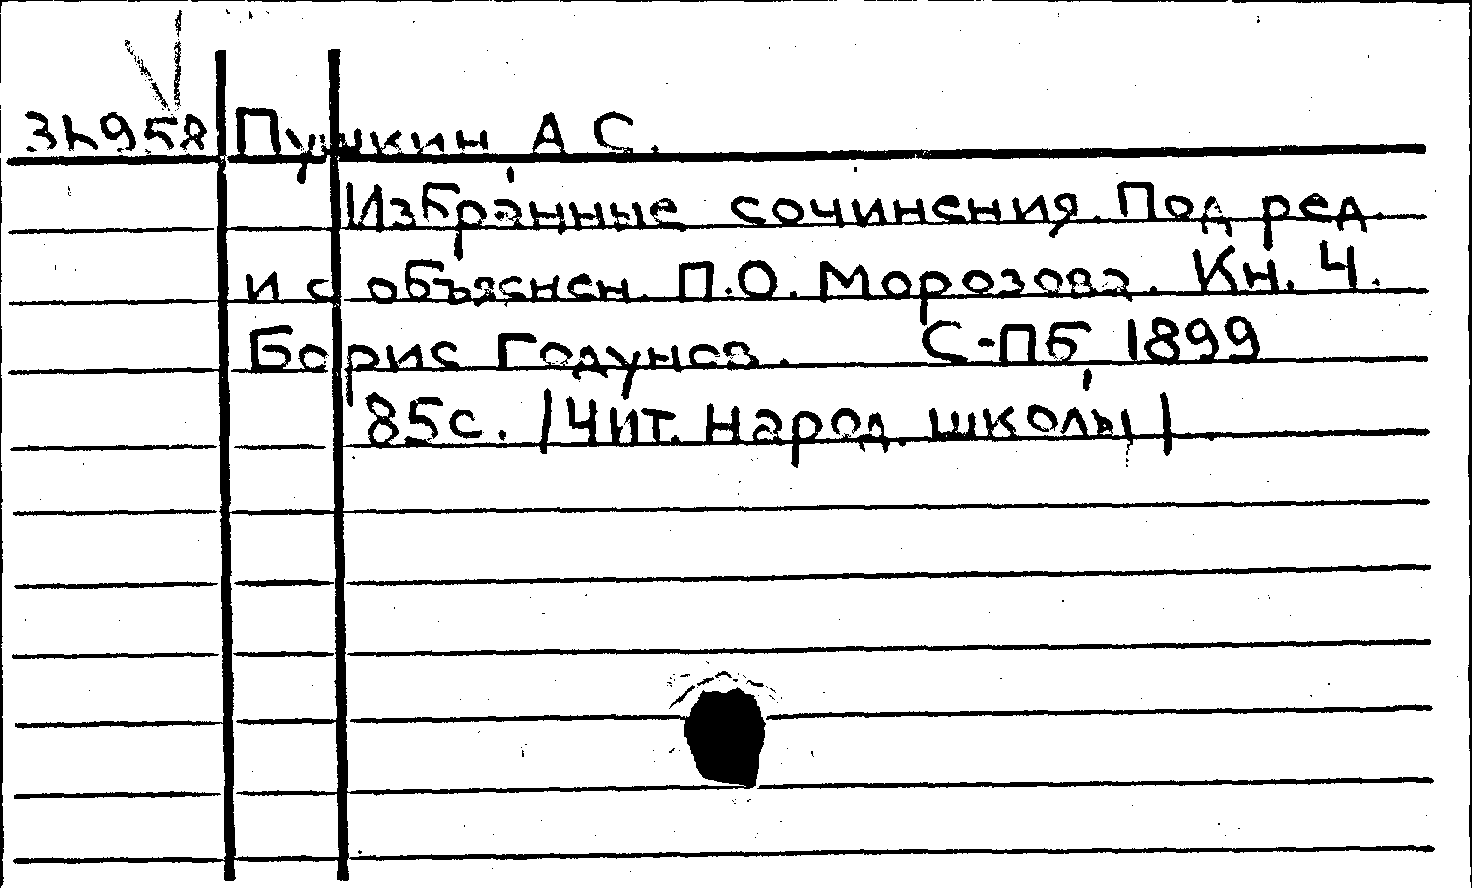 Пушкин, А С.
Избранные сочинения. Под ред.
и с объяснен. П.О. Морозова. Кн. 4.
Борис Годунов. С-ПБ, 1899
85с. /Чит. народ. школы/